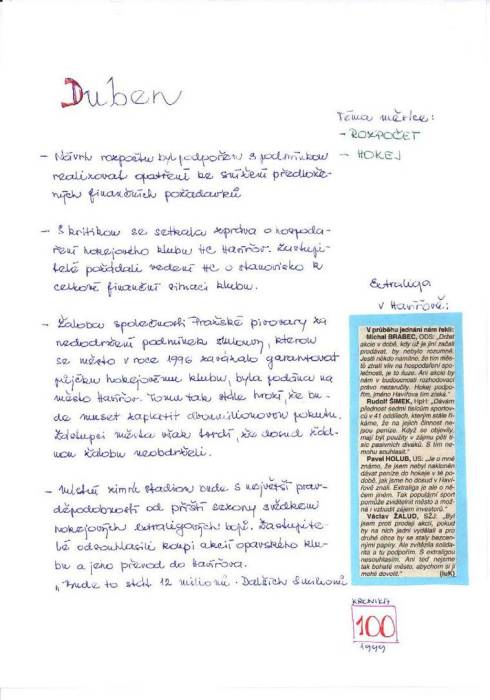 Duben
Téma měsíce:
- ROZPOČET
- HOKEJ
- Návrh rozpočtu byl podpořen s podmínkou
realizovat opatření ke snížení předlože-
ných finančních požadavků
- S kritikou se setkala zpráva o hospoda-
ření hokejového klubu HC Havířov. Zastupi-
telé požádali vedení HC o stanovisko k
celkové finanční situaci klubu.
- Žaloba společnosti Pražské pivovary za
nedodržení podmínek smlouvy, kterou
se město v roce 1996 zavázalo garantovat
půjčku hokejovému klubu, byla podána na
město Havířov. Tomu tak stále hrozí, že bu-
de muset zaplatit dvoumilionovou pokutu.
Zástupci města však tvrdí, že dosud žád-
nou žalobu neobdrželi.
- Místní zimní stadion bude s největší prav-
děpodobností od příští sezony svědkem
hokejových extraligových bojů. Zastupite-
lé odsouhlasili koupi akcií opavského klu-
bu a jeho převod do Havířova.
"Bude to stát 12 milionů. Dalších 5 milionů
Extraliga
v Havířově:
V průběhu jednání nám řekli:
Michal BRABEC, ODS: „Držet
akcie v době, kdy už je jiní začali
prodávat, by nebylo rozumné.
Jestli někdo namítne, že tím měs-
to ztratí vliv na hospodaření spo-
lečnosti, je to iluze. Ani akcie by
nám v budoucnosti rozhodovací
právo nezaručily. Hokej podpo-
řím, jméno Havířova tím získá."
Rudolf ŠIMEK, HpH: „Dávám
přednost sedmi tisícům sportov-
ců v 41 oddílech, kterým stále ří-
káme, že na jejich činnost ne-
jsou peníze. Když se objevily,
mají být použity v zájmu pěti ti-
síc pasivních diváků. S tím ne-
mohu souhlasit."
Pavel HOLUB, US: „Je o mně
známo, že jsem nebyl nakloněn
dávat peníze do hokeje v té po-
době, jak jsme ho dosud v Haví-
řově znali. Extraliga je ale o ně-
čem jiném. Tak populární sport
pomůže zviditelnit město a mož-
ná i vzbudí zájem investorů."
Václav ŽALUD, SZJ: „Byl
jsem proti prodeji akcií, pokud
by na nich jední vydělali a pro
druhé občany by se staly bezcen-
nými papíry. Ale zvítězila solidarita
a tu podpořím. S extraligou
nesouhlasím. Ani teď nejsme
tak bohaté město, abychom si ji
mohli dovolit." (luK)
KRONIKA
100
1999